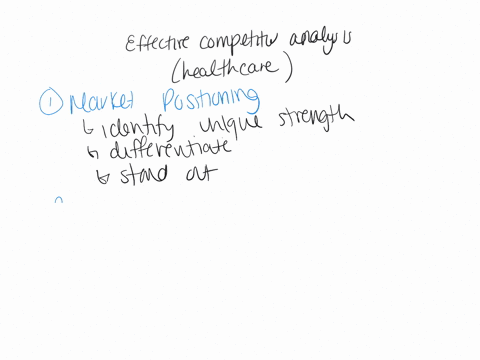 Effective competitor analysis
(healthcare)
① Market Positioning
↳ identify unique strength
↳ differentiate
↳ stand out